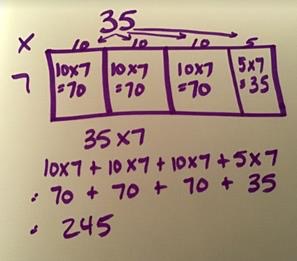 35
x 10 10 10 5
7 10x7 10x7 10x7 5x7
=70 =70 =70 =35
35x7
10x7 + 10x7 + 10x7 + 5x7
: 70 + 70 + 70 + 35
: 245